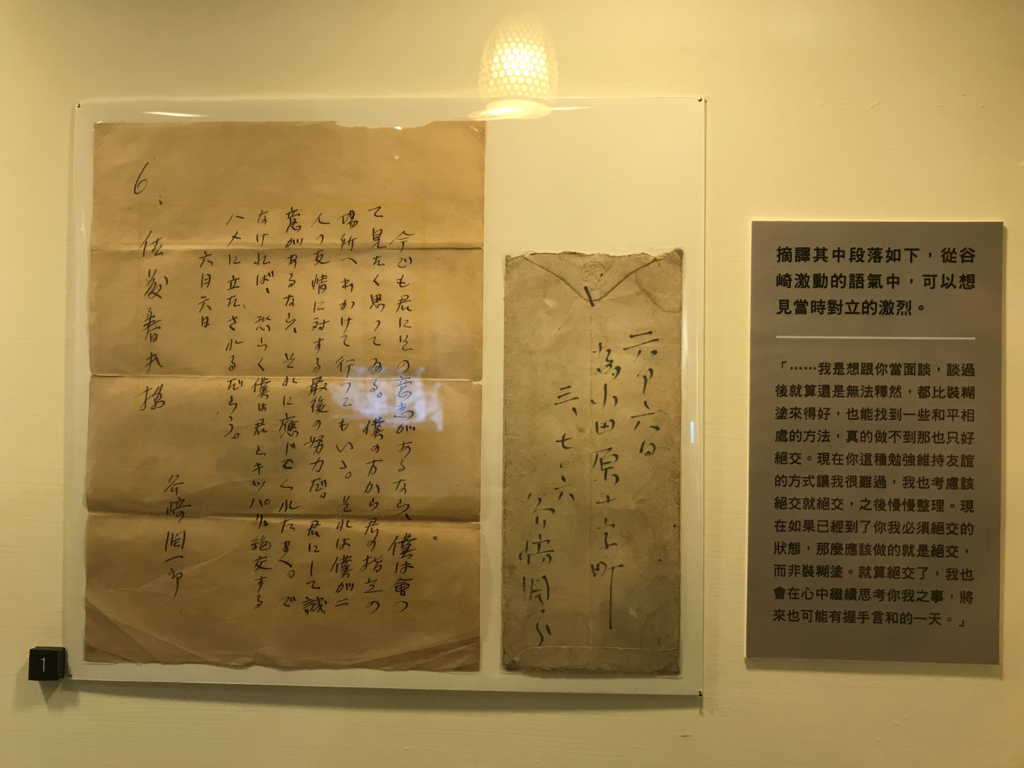 6、
今でも君にその意志があるなら、僕は會つ
て見たく思つてゐる。僕の方から君の指定の
場所へ出かけて行つてもいゝ。それは僕が二
人の友情に対する最後の努力だ。君にして誠
意があるなら、それに應じてくれたまへ。で
なければ、恐らく僕は君とキツパリ絶交する
ハメに立たされるだらう。
六月六日
谷崎潤一郎
佐藤春夫様
六月六日
小田原十字町
三、七〇六
谷崎潤一郎
摘譯其中段落如下，從谷
崎激動的語氣中，可以想
見當時對立的激烈。
「⋯⋯我是想跟你當面談，談過
後就算還是無法釋然，都比裝糊
塗來得好，也能找到一些和平相
處的方法，真的做不到那也只好
絕交。現在你這種勉強維持友誼
的方式讓我很難過，我也考慮該
絕交就絕交，之後慢慢整理。現
在如果已經到了你我必須絕交的
狀態，那麼應該做的就是絕交，
而非裝糊塗。就算絕交了，我也
會在心中繼續思考你我之事，將
來也可能有握手言和的一天。」
1